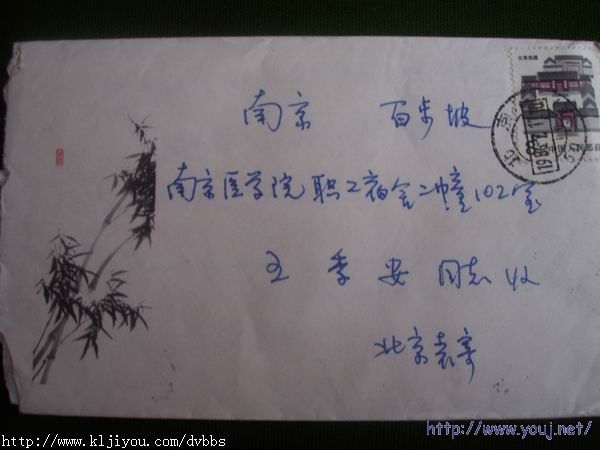 南京 百步坡
南京医学院职工宿舍二幢102室
王季安 同志收
北京袁寄
中国人民邮政
http://www.kljiyou.com/dvbbs
http://www.youj.net/